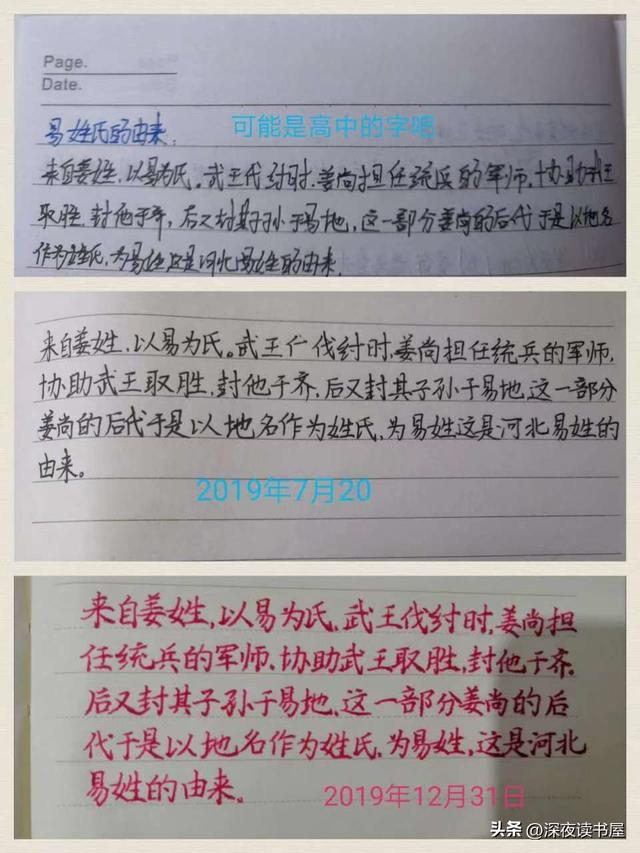 Page.
Date.
易姓氏的由来.
可能是高中的字吧
来自姜姓,以易为氏。武王伐纣时,姜尚担任统兵的军师,协助武王
取胜,封他于齐,后又封其子孙于易地,这一部分姜尚的后代于是以地名
作为姓氏,为易姓这是河北易姓的由来.
来自姜姓,以易为氏。武王亻伐纣时,姜尚担任统兵的军师,
协助武王取胜,封他于齐.后又封其子孙于易地,这一部分
姜尚的后代于是以地名作为姓氏,为易姓这是河北易姓的
由来。
2019年7月20
来自姜姓,以易为氏.武王伐纣时,姜尚担
任统兵的军师.协助武王取胜,封他于齐.
后又封其子孙于易地、这一部分姜尚的后
代于是以地名作为姓氏,为易姓,这是河北
易姓的由来。
2019年12月31日
头条 @深夜读书屋